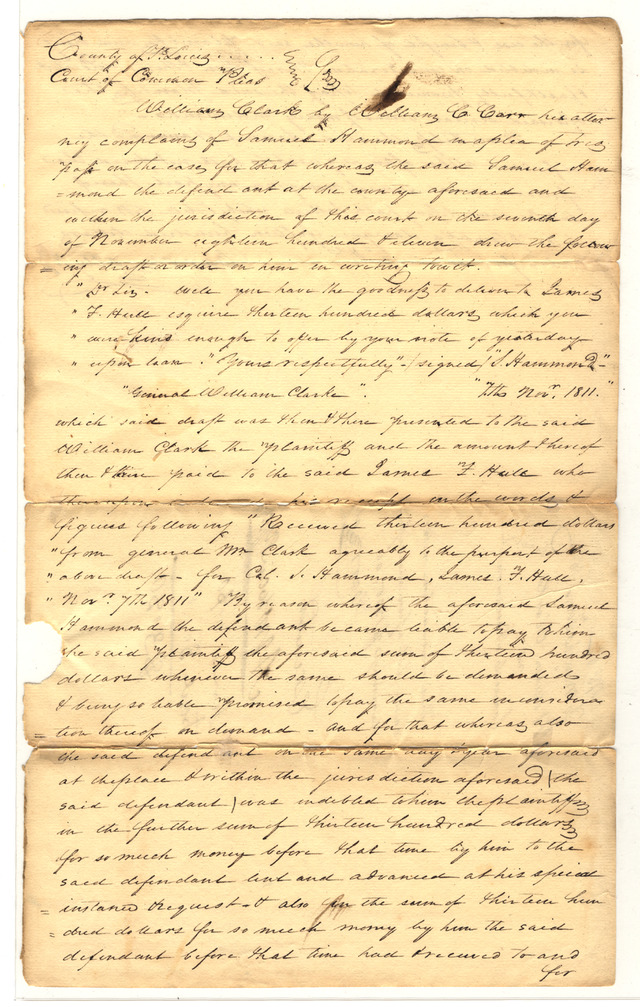 County of St Louis . . . . .
Court of Common Pleas
William Clark by William C. Carr his attor
ney complains of Samuel Hammond in a plea of tres
pass on the case, for that whereas the said Samuel Ham
=mond the defendant at the county aforesaid and
within the jurisdiction of this court on the seventh day
of November eighteen hundred & eleven drew the follow
=ing draft or order on him in writing towit.
"Dr Sir. Will you have the goodness to deliver to James
" F. Hull esquire thirteen hundred dollars which you
" were kind enough to offer by your note of yesterday
" upon loan." Yours respectfully"-(signed) "S. Hammond"
"General William Clarke". "7th Nov.r 1811."
which said draft was then & there presented to the said
William Clark the plaintiff and the amount thereof
then & there paid to the said James F. Hull who
thereupon his receipt in the words &
figures following "Received thirteen hundred dollars
"from general Wm Clark agreeably to the purport of the
"above draft - for Col. S. Hammond, James F. Hull,
"Nov.r 7th 1811" By reason whereof the aforesaid Samuel
Hammond the defendant became liable to pay to him
the said plaintiff the aforesaid sum of thirteen hundred
dollars whenever the same should be demanded
& being so liable promised to pay the same in considera
tion thereof on demand - and for that whereas also
the said defendant on the same day & year aforesaid
at the place & within the jurisdiction aforesaid (the
said defendant) was indebted to him the plaintiff
in the further sum of thirteen hundred dollars
for so much money before that time by him to the
said defendant lent and advanced at his special
instance & request - & also in the sum of thirteen hun
=dred dollars for so much money by him the said
defendant before that time had & received to and
for